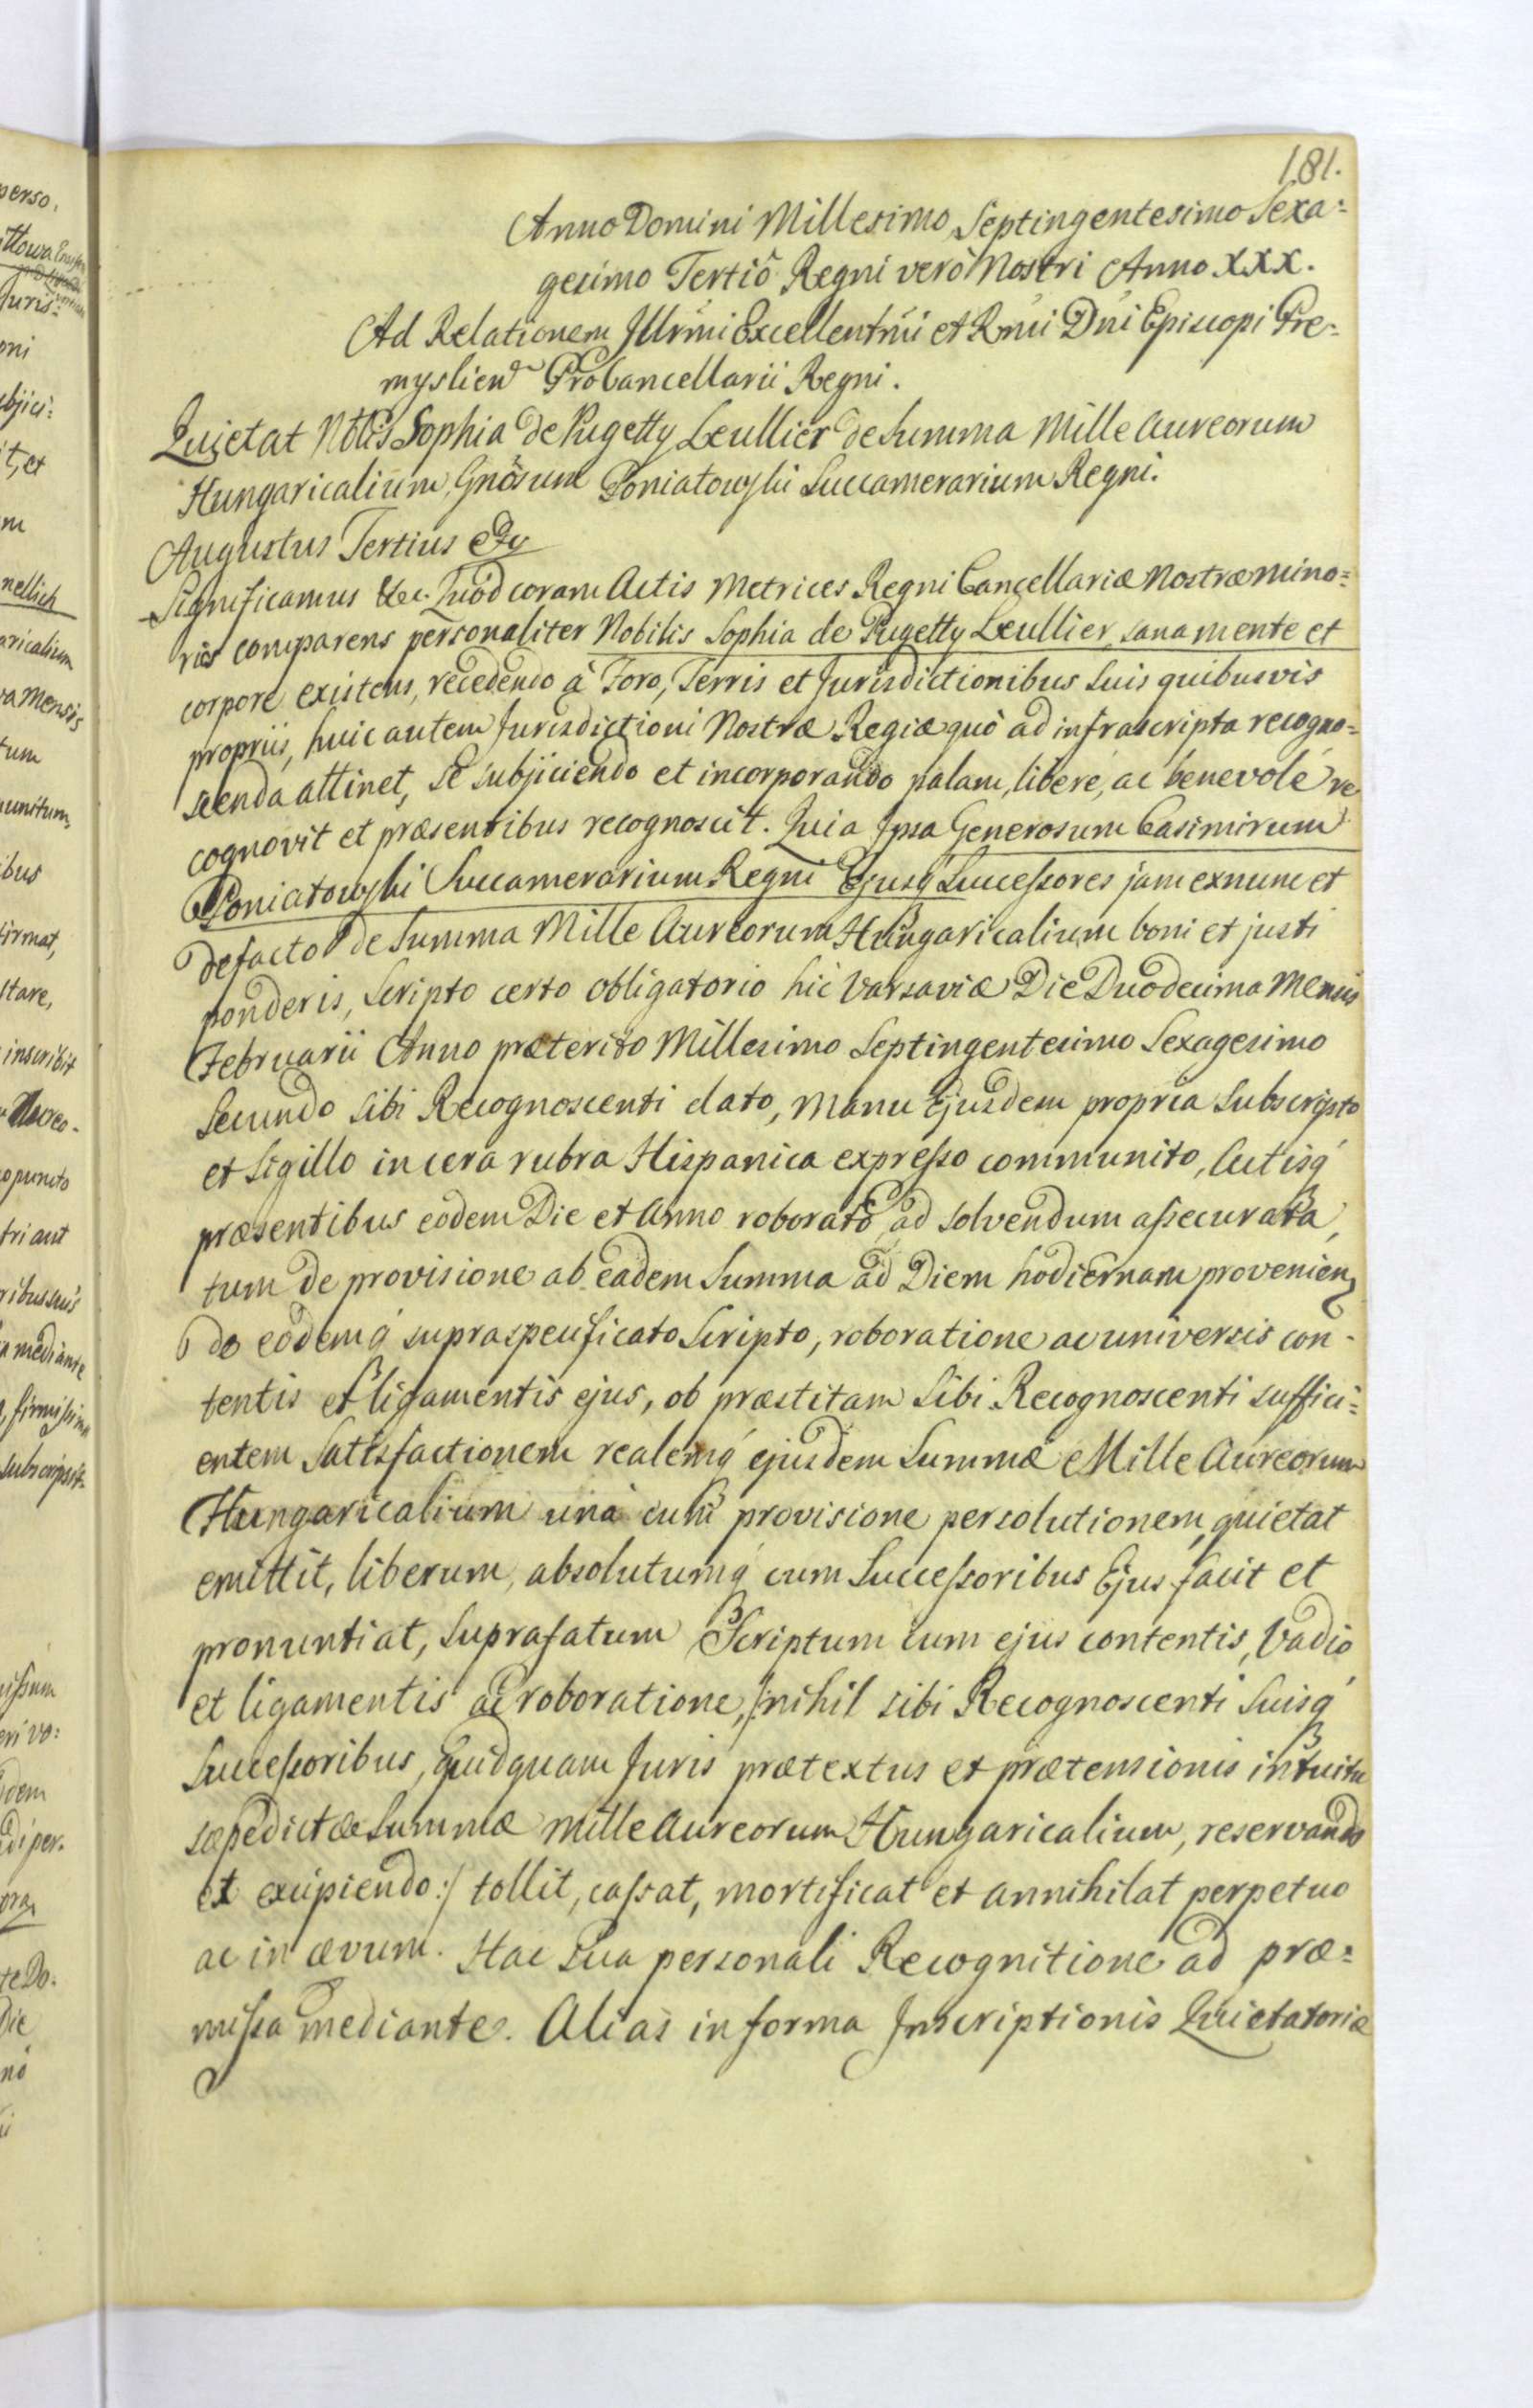 181.
Anno Domini Millesimo Septingentesimo Sexa=
gesimo Tertiô Regni verò Nostri Anno XXX.
Ad Relationem Illrmi Excellentmi et Rmi Dni Episcopi Pre=
myslien Procancellarii Regni.
Quietat Nblis Sophia de Pugetty Leullier de Summa Mille Aureorum
Hungaricalium, Gnosum Poniatowski Succamerarium Regni.
Augustus Tertius
Significamus &c. Quòd coram Actis Metrices Regni Cancellariæ Nostræ mino=
ris comparens personaliter Nobilis Sophia de Pugetty Leullier, sana mente et
corpore existens, recedendo à Foro, Terris et Jurisdictionibus suis quibusvis
propriis, huic autem Jurisdictioni Nostræ Regiæ quò ad infrascripta recogno=
scenda attinet, se subjiciendo et incorporando palam, liberè, ac benevolè re
cognovit et præsentibus recognoscit. Quia Ipsa Generosum Casimirum
Poniatowski Succamerarium Regni Ejusq Successores jam exnunc et
defacto de Summa Mille Aureorum Hungaricalium boni et justi
ponderis, Scripto certo obligatorio hic Varsaviæ Die Duodecima Mensis
Februarii Anno præterito Millesimo Septingentesimo Sexagesimo
Secundo sibi Recognoscenti dato, Manu Ejusdem propria Subscripto
et Sigillo in cera rubra Hispanica expresso communito, Actisq
præsentibus eodem Die et Anno roborato, ad solvendum assecurata,
tum de provisione ab eadem Summa ad Diem hodiernam provenien
de eodemq supraspecificato Scripto, roboratione ac universis con-
tentis et ligamentis ejus, ob præstitam Sibi Recognoscenti suffici=
entem Satisfactionem realemq ejusdem Summæ Mille Aureorum
Hungaricalium unà cum provisione persolutionem, quietat
emittit, liberum, absolutumq cum Successoribus Ejus facit et
pronuntiat, Suprafatum Scriptum cum ejus contentis, Vadio
et ligamentis ac roboratione, /:nihil sibi Recognoscenti Suisq
Successoribus, quidquam Juris prætextus et prætensionis intuitu
sæpedictæ Summæ Mille Aureorum Hungaricalium, reservando
et excipiendo:/ tollit, cassat, mortificat et annihilat perpetuo
ac in ævum. Hac Sua personali Recognitione ad præ=
missa mediante. Alias in forma Inscriptionis Quietatoriæ